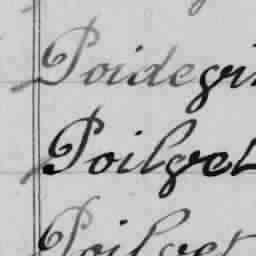 Poidegri
Poilvet
Poilvet